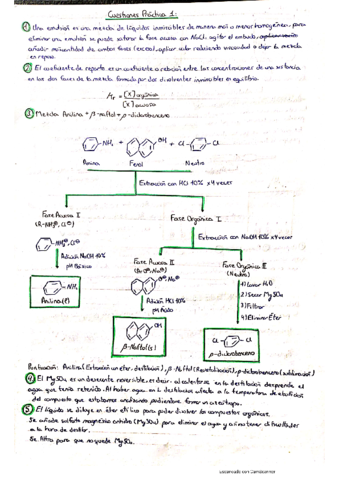 Cuestiones Práctica 1:
① Una emulsión es una mezcla de líquidos inmiscibles de manera más o menos homogénea, para
eliminar una emulsión se puede saturar la fase acuosa con NaCl, agitar el embudo,
añadir más cantidad de ambas fases (exceso), aplicar calor reduciendo viscosidad o dejar la mezcla
en reposo.
② El coeficiente de reparto es un coeficiente o relación entre las concentraciones de una sustancia
en las dos fases de la mezcla formada por dos disolventes inmiscibles en equilibrio.
[X] orgánica
[X] acuosa
③ Mezcla Anilina + β-naftol + p-diclorobenceno
NH₂ + OH + Cl Cl
Amina Fenol Neutro
Extracción con HCl 10% x4 veces
Fase Acuosa I
(R-NH₃⊕, Cl⊖)
Fase Orgánica I
NH₃⊕, Cl⊖
Extracción con NaOH 10% x4 veces
Adición NaOH 10%
pH Básico
Fase Acuosa II
Fase Orgánica II
(Neutro)
NH₂
Anilina (l)
O⊖, Na⊕
1) Lavar H₂O
2) Secar MgSO₄
3) Filtrar
4) Eliminar Éter
Adición HCl 10%
pH Ácido
OH
β-Naftol (s)
Cl Cl
p-diclorobenceno
Purificación: Anilina (Extracción con éter, destilación), β-Naftol (Recristalización), p-diclorobenceno (sublimación)
④ El MgSO₄ es un desecante reversible, es decir, al calentarse en la destilación desprende el
agua que tenía retenida. Al haber agua en la destilación afecta a la temperatura de ebullición
del compuesto que estábamos analizando pudiéndose formar un azeótropo.
⑤ El líquido se diluye en éter etílico para poder disolver los compuestos orgánicos.
Se añade sulfato magnésico anhidro (MgSO₄) para eliminar el agua y así no tener dificultades
a la hora de destilar.
Se filtra para que no quede MgSO₄.
Escaneado con CamScanner